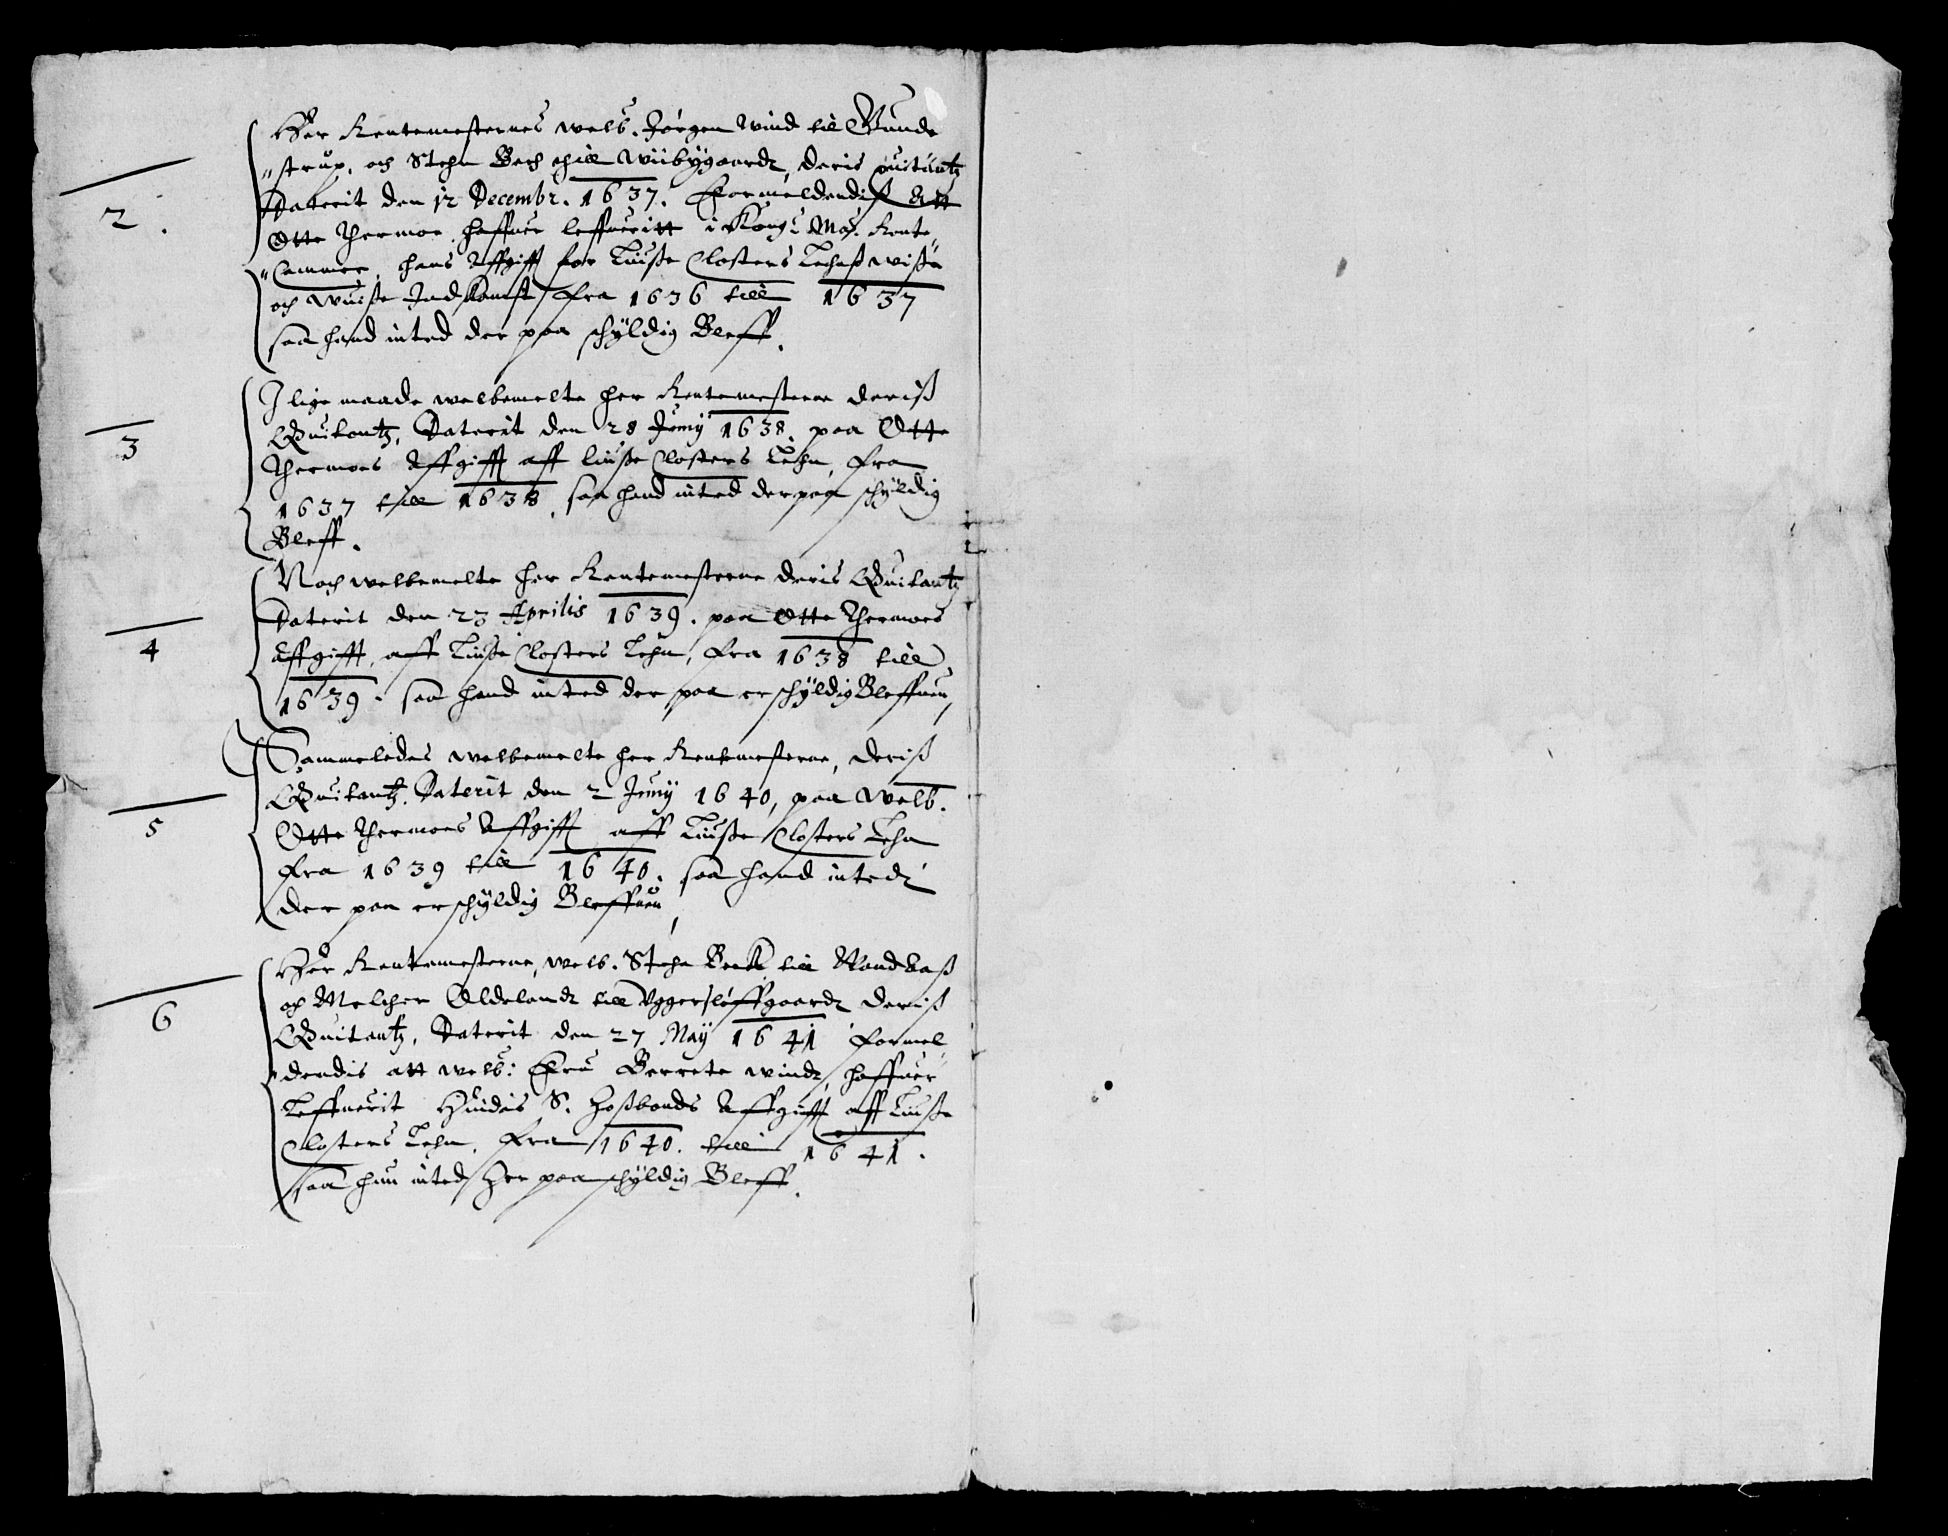 2.
Her Rentemesternes welb. Jørgen Wind till Gunde
"strup, och Stehn Bech thill Wiibÿgaardt, deris quitantz
Daterit den 12 Decembr. 1637. Formeldendis Att
Otte Thermoe haffuer leffueritt i Kong: May: Rente
"Cammer, hans Affgifft for Liuße Closters Lehnß wiße
och wuiße Indkomst, fra 1636 till 1637
saa hand inted der paa schÿldig Bleff.
3
I lige maade welbemelte her Rentemestere deriß
Quitantz, Daterit den 28 Junij 1638. paa Otte
Thermoes Affgifft aff liuße Closters Lehn, fra
1637 till 1638, saa hand inted der paa schÿldig
Bleff.
4
Noch welbemelte her Rentemesterne deris Quitantz
Daterit den 23 Aprilis 1639. paa Otte Thermoes
Affgifft, aff Liuße Closters Lehn, fra 1638 till
1639. saa hand inted der paa er schÿldig Bleffuen,
5
Sammeledes welbemelte her Rentemesterne, deriß
Quitantz. Daterit den 2 Junij 1640, paa Welb.
Otte Thermoes Affgifft aff Liuße Closters Lehn
fra 1639 till 1640. saa hand intedt
der paa er schÿldig Bleffuen,
6
Her Rentemesterne, welb. Stehn Beck till Wandaaß
och Melcher Oldelandt till Uggersløffgaardt deriß
Quitantz, Daterit den 27 Maÿ 1641 formel
dendis att welb: Fru Berrete windt, haffuer
Leffuerit Hindis S. Hoßbonds Affgifft aff Liuße
Closters Lehn, fra 1640. till 1641.
saa hun inted her paa schÿldig Bleff.